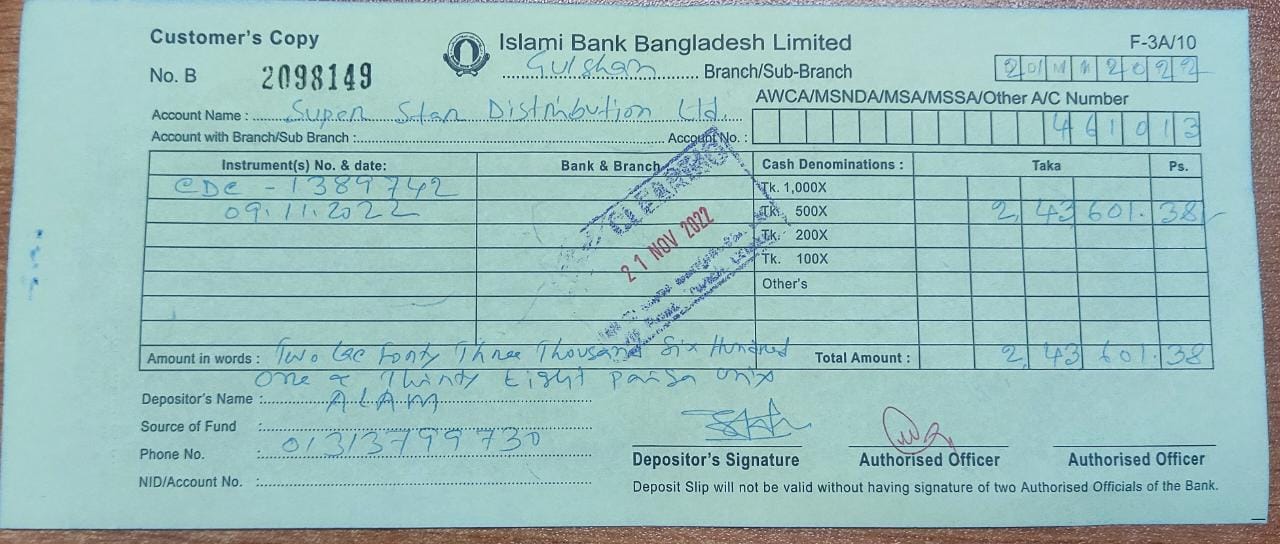 Customer's Copy
Islami Bank Bangladesh Limited
F-3A/10
No. B 2098149
Gulshan Branch/Sub-Branch
2022
AWCA/MSNDA/MSA/MSSA/Other A/C Number
Account Name : Super Star Distribution Ltd.
Account with Branch/Sub Branch : Account No. : 461013
Instrument(s) No. & date: Bank & Branch Cash Denominations : Taka Ps.
CDC - 1389742 Tk. 1,000X
09.11.2022 Tk. 500X 2,43 601.38/-
Tk. 200X
Tk. 100X
Other's
CLEARING
21 NOV 2022
Amount in words : Two Lac Forty Three Thousand Six Hundred Total Amount : 2,43 601.38
One & Thirty Eight paisa only
Depositor's Name : ALAM
Source of Fund :
Phone No. : 01313799730
NID/Account No. :
Depositor's Signature Authorised Officer Authorised Officer
Deposit Slip will not be valid without having signature of two Authorised Officials of the Bank.